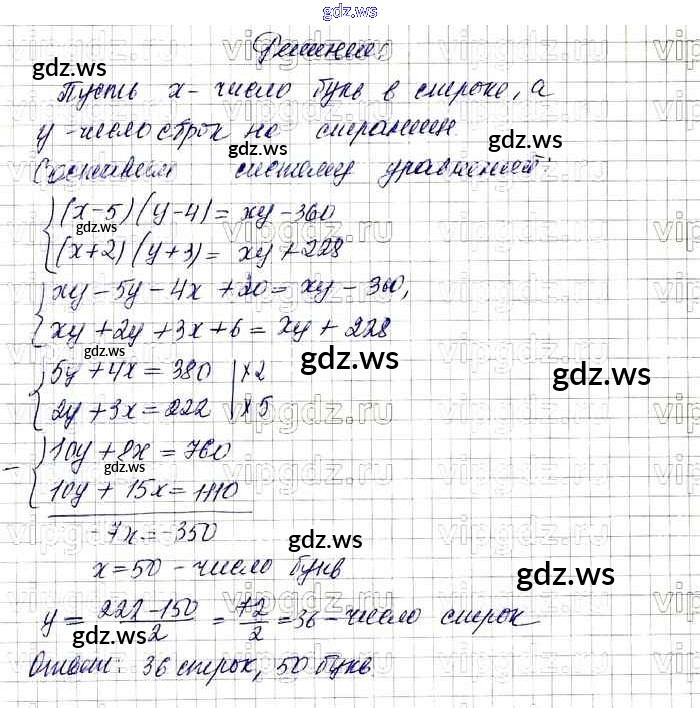 gdz.ws
Решение:
gdz.ws
Пусть x - число букв в строке, а
y - число строк на странице
gdz.ws
Составим систему уравнений:
(x-5)(y-4) = xy - 360
gdz.ws
(x+2)(y+3) = xy + 228
xy - 5y - 4x + 20 = xy - 360,
xy + 2y + 3x + 6 = xy + 228
gdz.ws
gdz.ws
gdz.ws
5y + 4x = 380 | x2
2y + 3x = 222 | x5
- 10y + 8x = 760
gdz.ws
10y + 15x = 1110
-7x = -350
gdz.ws
x = 50 - число букв
gdz.ws
y = (222 - 150)/2 = 72/2 = 36 - число строк
gdz.ws
Ответ: 36 строк, 50 букв